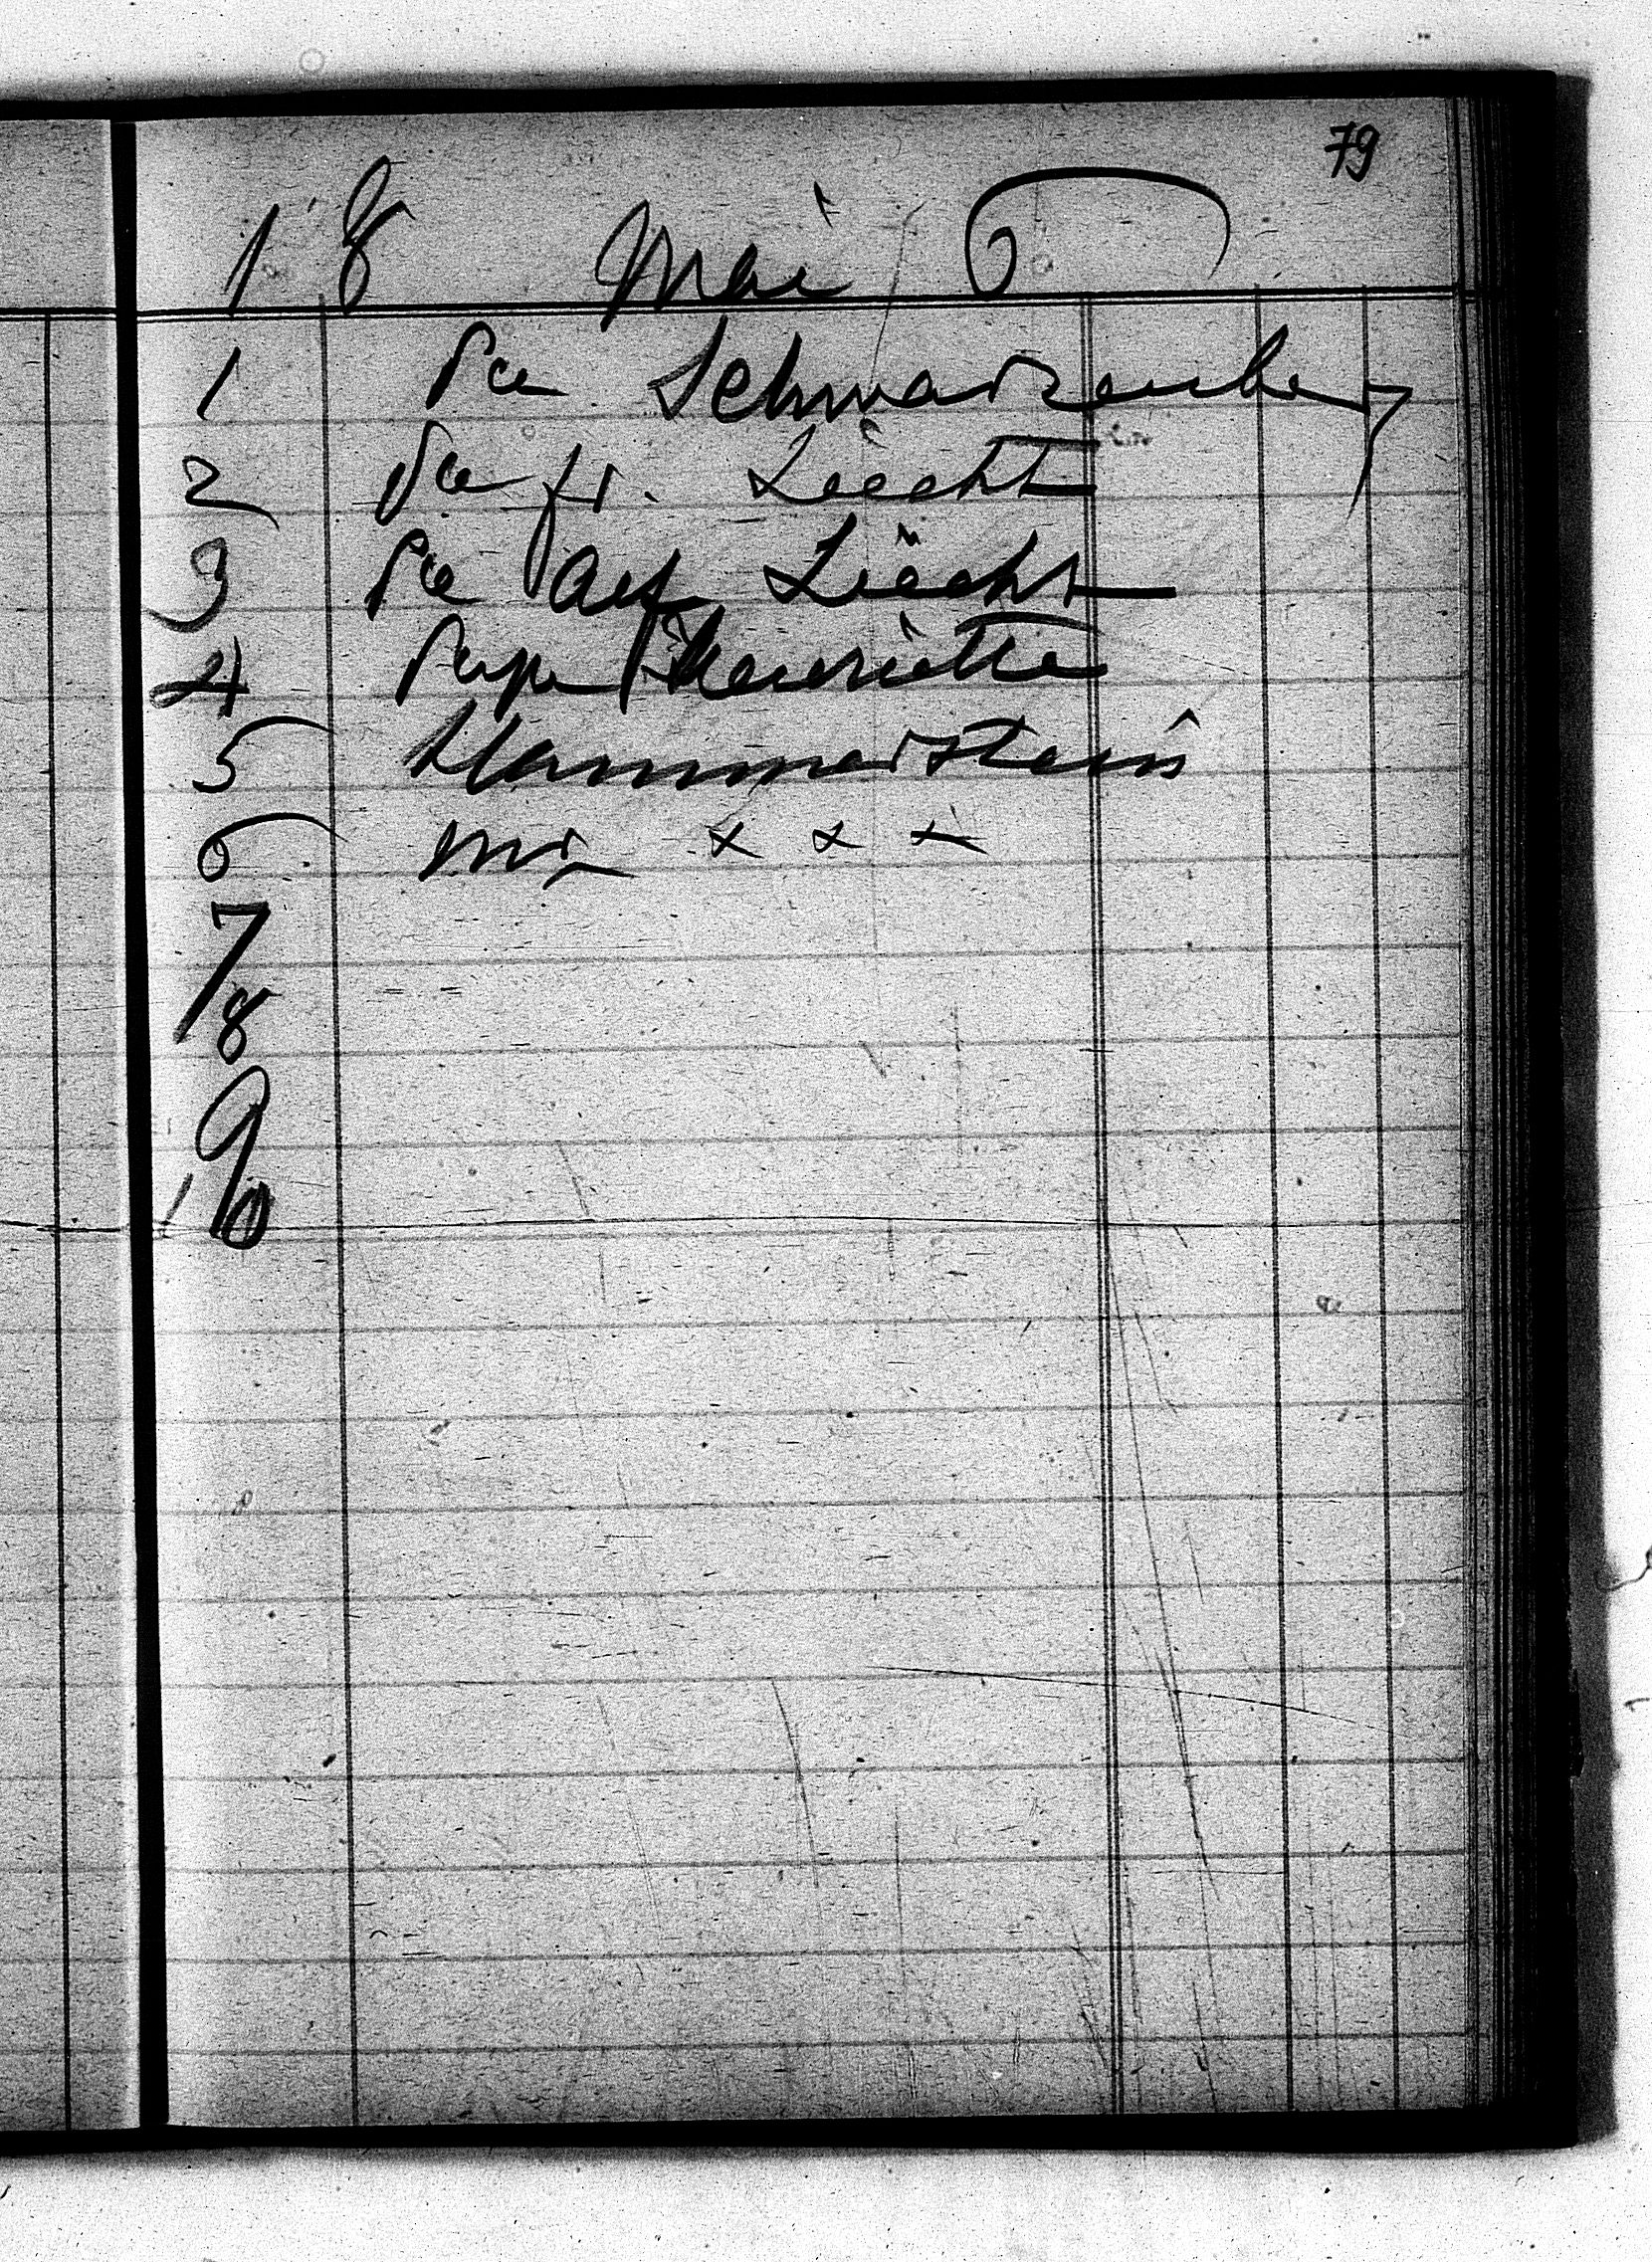 79
18 Mai 6
1 Pce Schwarzenberg
2 Pce fr. Liecht
3 Pce Alf Liecht
4 Henriette
5 Hammerstein
6 x x x
7
8
9
10